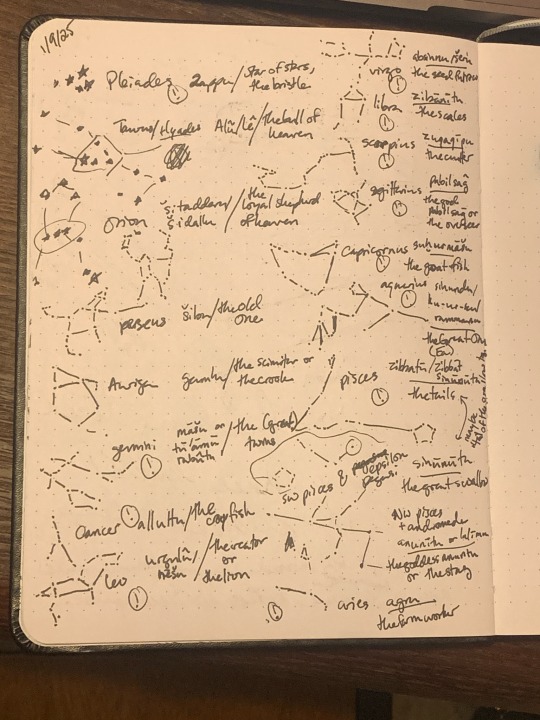 1/9/25
Pleiades Zappu/star of stars,
the bristle
Taurus/Hyades Alû/Lê/the bull of
heaven
Orion Šitaddaru/the loyal shepherd
Šidallu of heaven
perseus šību/the old
one
Auriga gamlu/the scimiter or
the crook
gemini māšu or /the (great)
twins
rabûtu
Cancer alluttu/the crayfish
Leo urgulû/the creator
nēšu or
the lion
virgo absinnu/šerū
the seed furrow
libra zibānītu
the scales
scorpius zuqaqīpu
the cutter
sagittarius pabilsağ
the good
pabilsağ or
the overseer
Capricornus suhurmāšu
the goat fish
aquarius
ku-ur-ku/
rammanu
the Great One
(Ea)
pisces zibbātu/zibbāt
sinūnūtu
the tails
SW pisces & epsilon
pegasi
sinūnūtu
the great swallow
NW pisces
+ andromeda
anunītu or lulīmu
the goddess anunitu
or the stag
aries agru
the farm worker